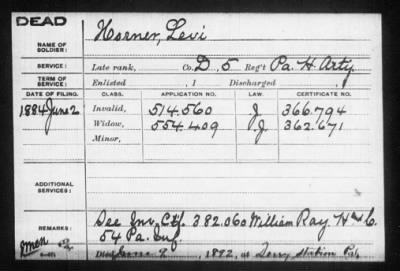 DEAD
Horner, Levi
NAME OF SOLDIER:
SERVICE: Late rank, Co. D, 5 Reg't Pa. H. Arty.
TERM OF SERVICE: Enlisted , 1 Discharged , 1
DATE OF FILING. CLASS. APPLICATION NO. LAW. CERTIFICATE NO.
1884 June 2 Invalid, 514.560 J. 366.794
Widow, 554.409 J. 362.671
Minor,
ADDITIONAL SERVICES:
REMARKS: See Inv. Ctf. 382.060 William Ray H & C.
54 Pa. Inf.
Died 9, 1892, at Derry Station Pa.